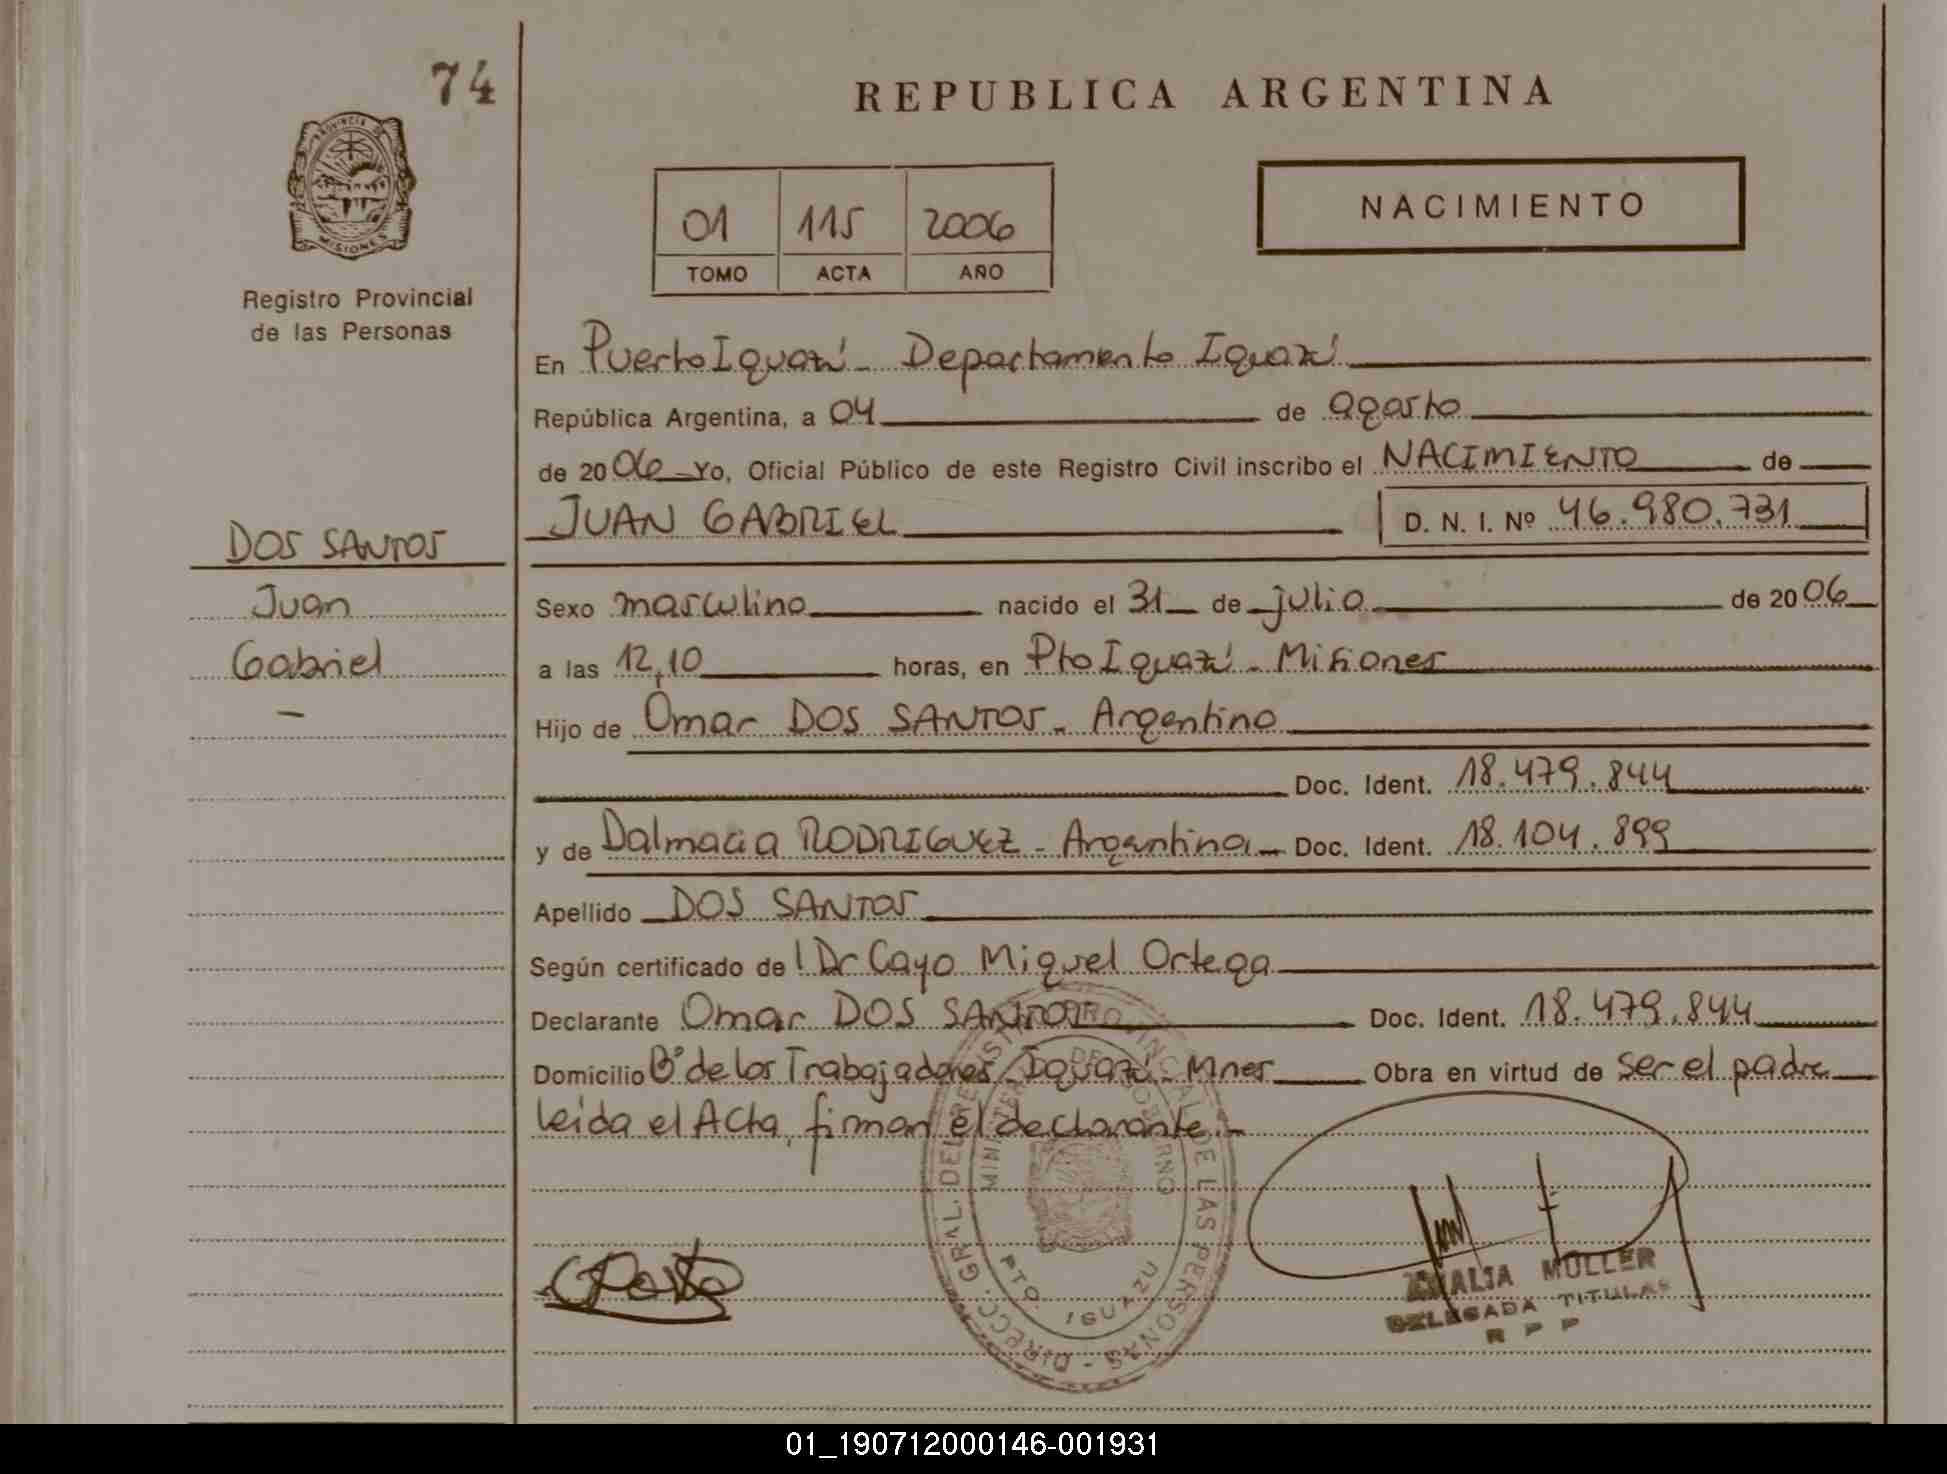 74
REPUBLICA ARGENTINA
PROVINCIA DE
MISIONES
Registro Provincial
de las Personas
01 115 2006
TOMO ACTA AÑO
NACIMIENTO
En Puerto Iguazú - Departamento Iguazú
República Argentina, a 04 de agosto
de 2006 - Yo, Oficial Público de este Registro Civil inscribo el NACIMIENTO de
JUAN GABRIEL D. N. I. Nº 46.980.731
DOS SANTOS
Juan
Gabriel
-
Sexo masculino nacido el 31 de julio de 2006
a las 12,10 horas, en Pto Iguazú - Misiones
Hijo de Omar DOS SANTOS - Argentino
Doc. Ident. 18.479.844
y de Dalmacia RODRIGUEZ - Argentina - Doc. Ident. 18.104.899
Apellido DOS SANTOS
Según certificado de l Dr Cayo Miguel Ortega
Declarante Omar DOS SANTOS Doc. Ident. 18.479.844
Domicilio Bº de los Trabajadores - Iguazú - Mnes Obra en virtud de ser el padre
leída el Acta, firman el declarante.-
DIRECC. GRAL. DEL REGISTRO PROVINCIAL DE LAS PERSONAS -
MINISTERIO DE GOBIERNO
PTO. IGUAZU
MULLER
DELEGADA TITULAR
R P P
01_190712000146-001931